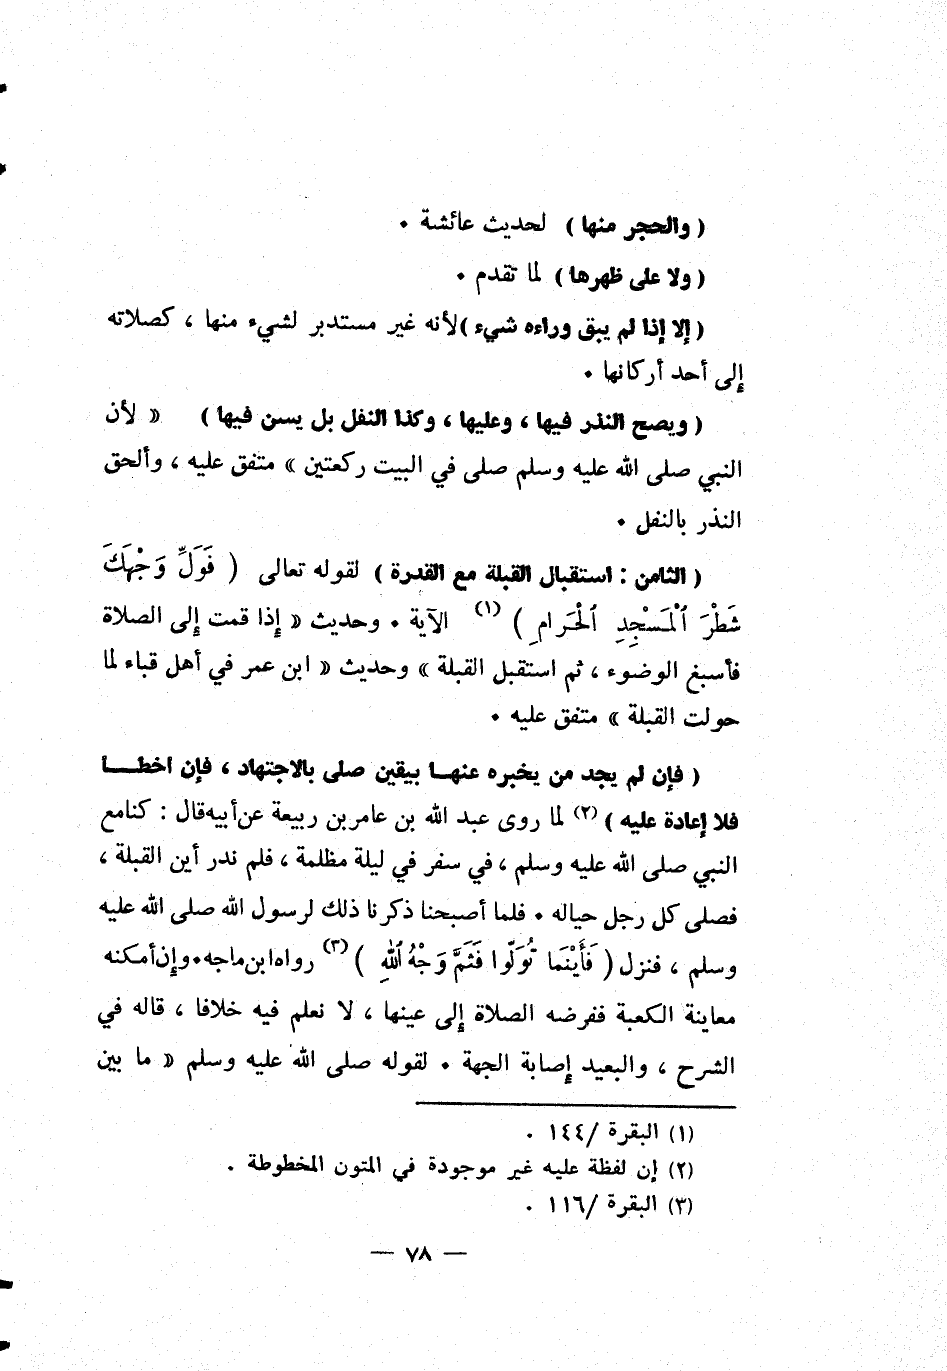 ( والحجر منها ) لحديث عائشة .
( ولا على ظهرها ) لما تقدم .
( إلا إذا لم يبق وراءه شيء )لأنه غير مستدبر لشيء منها ، كصلاته
إلى أحد أركانها .
( ويصح النذر فيها ، وعليها ، وكذا النفل بل يسن فيها ) « لأن
النبي صلى الله عليه وسلم صلى في البيت ركعتين » متفق عليه ، وألحق
النذر بالنفل .
( الثامن : استقبال القبلة مع القدرة ) لقوله تعالى ( فَوَلِّ وَجْهَكَ
شَطْرَ ٱلْمَسْجِدِ ٱلْحَرامِ ) (١) الآية . وحديث « إذا قمت إلى الصلاة
فأسبغ الوضوء ، ثم استقبل القبلة » وحديث « ابن عمر في أهل قباء لما
حولت القبلة » متفق عليه .
( فإن لم يجد من يخبره عنهـا بيقين صلى بالاجتهاد ، فإن اخطـــا
فلا إعادة عليه ) (٢) لما روى عبد الله بن عامر بن ربيعة عن أبيه قال : كنا مع
النبي صلى الله عليه وسلم ، في سفر في ليلة مظلمة ، فلم ندر أين القبلة ،
فصلى كل رجل حياله . فلما أصبحنا ذكرنا ذلك لرسول الله صلى الله عليه
وسلم ، فنزل ( فَأَيْنَمَا تُوَلّوا فَثَمَّ وَجْهُ ٱللهِ ) (٣) رواه ابن ماجه . وإن أمكنه
معاينة الكعبة ففرضه الصلاة إلى عينها ، لا نعلم فيه خلافا ، قاله في
الشرح ، والبعيد إصابة الجهة . لقوله صلى الله عليه وسلم « ما بين
(١) البقرة /١٤٤ .
(٢) إن لفظة عليه غير موجودة في المتون المخطوطة .
(٣) البقرة /١١٦ .
— ٧٨ —